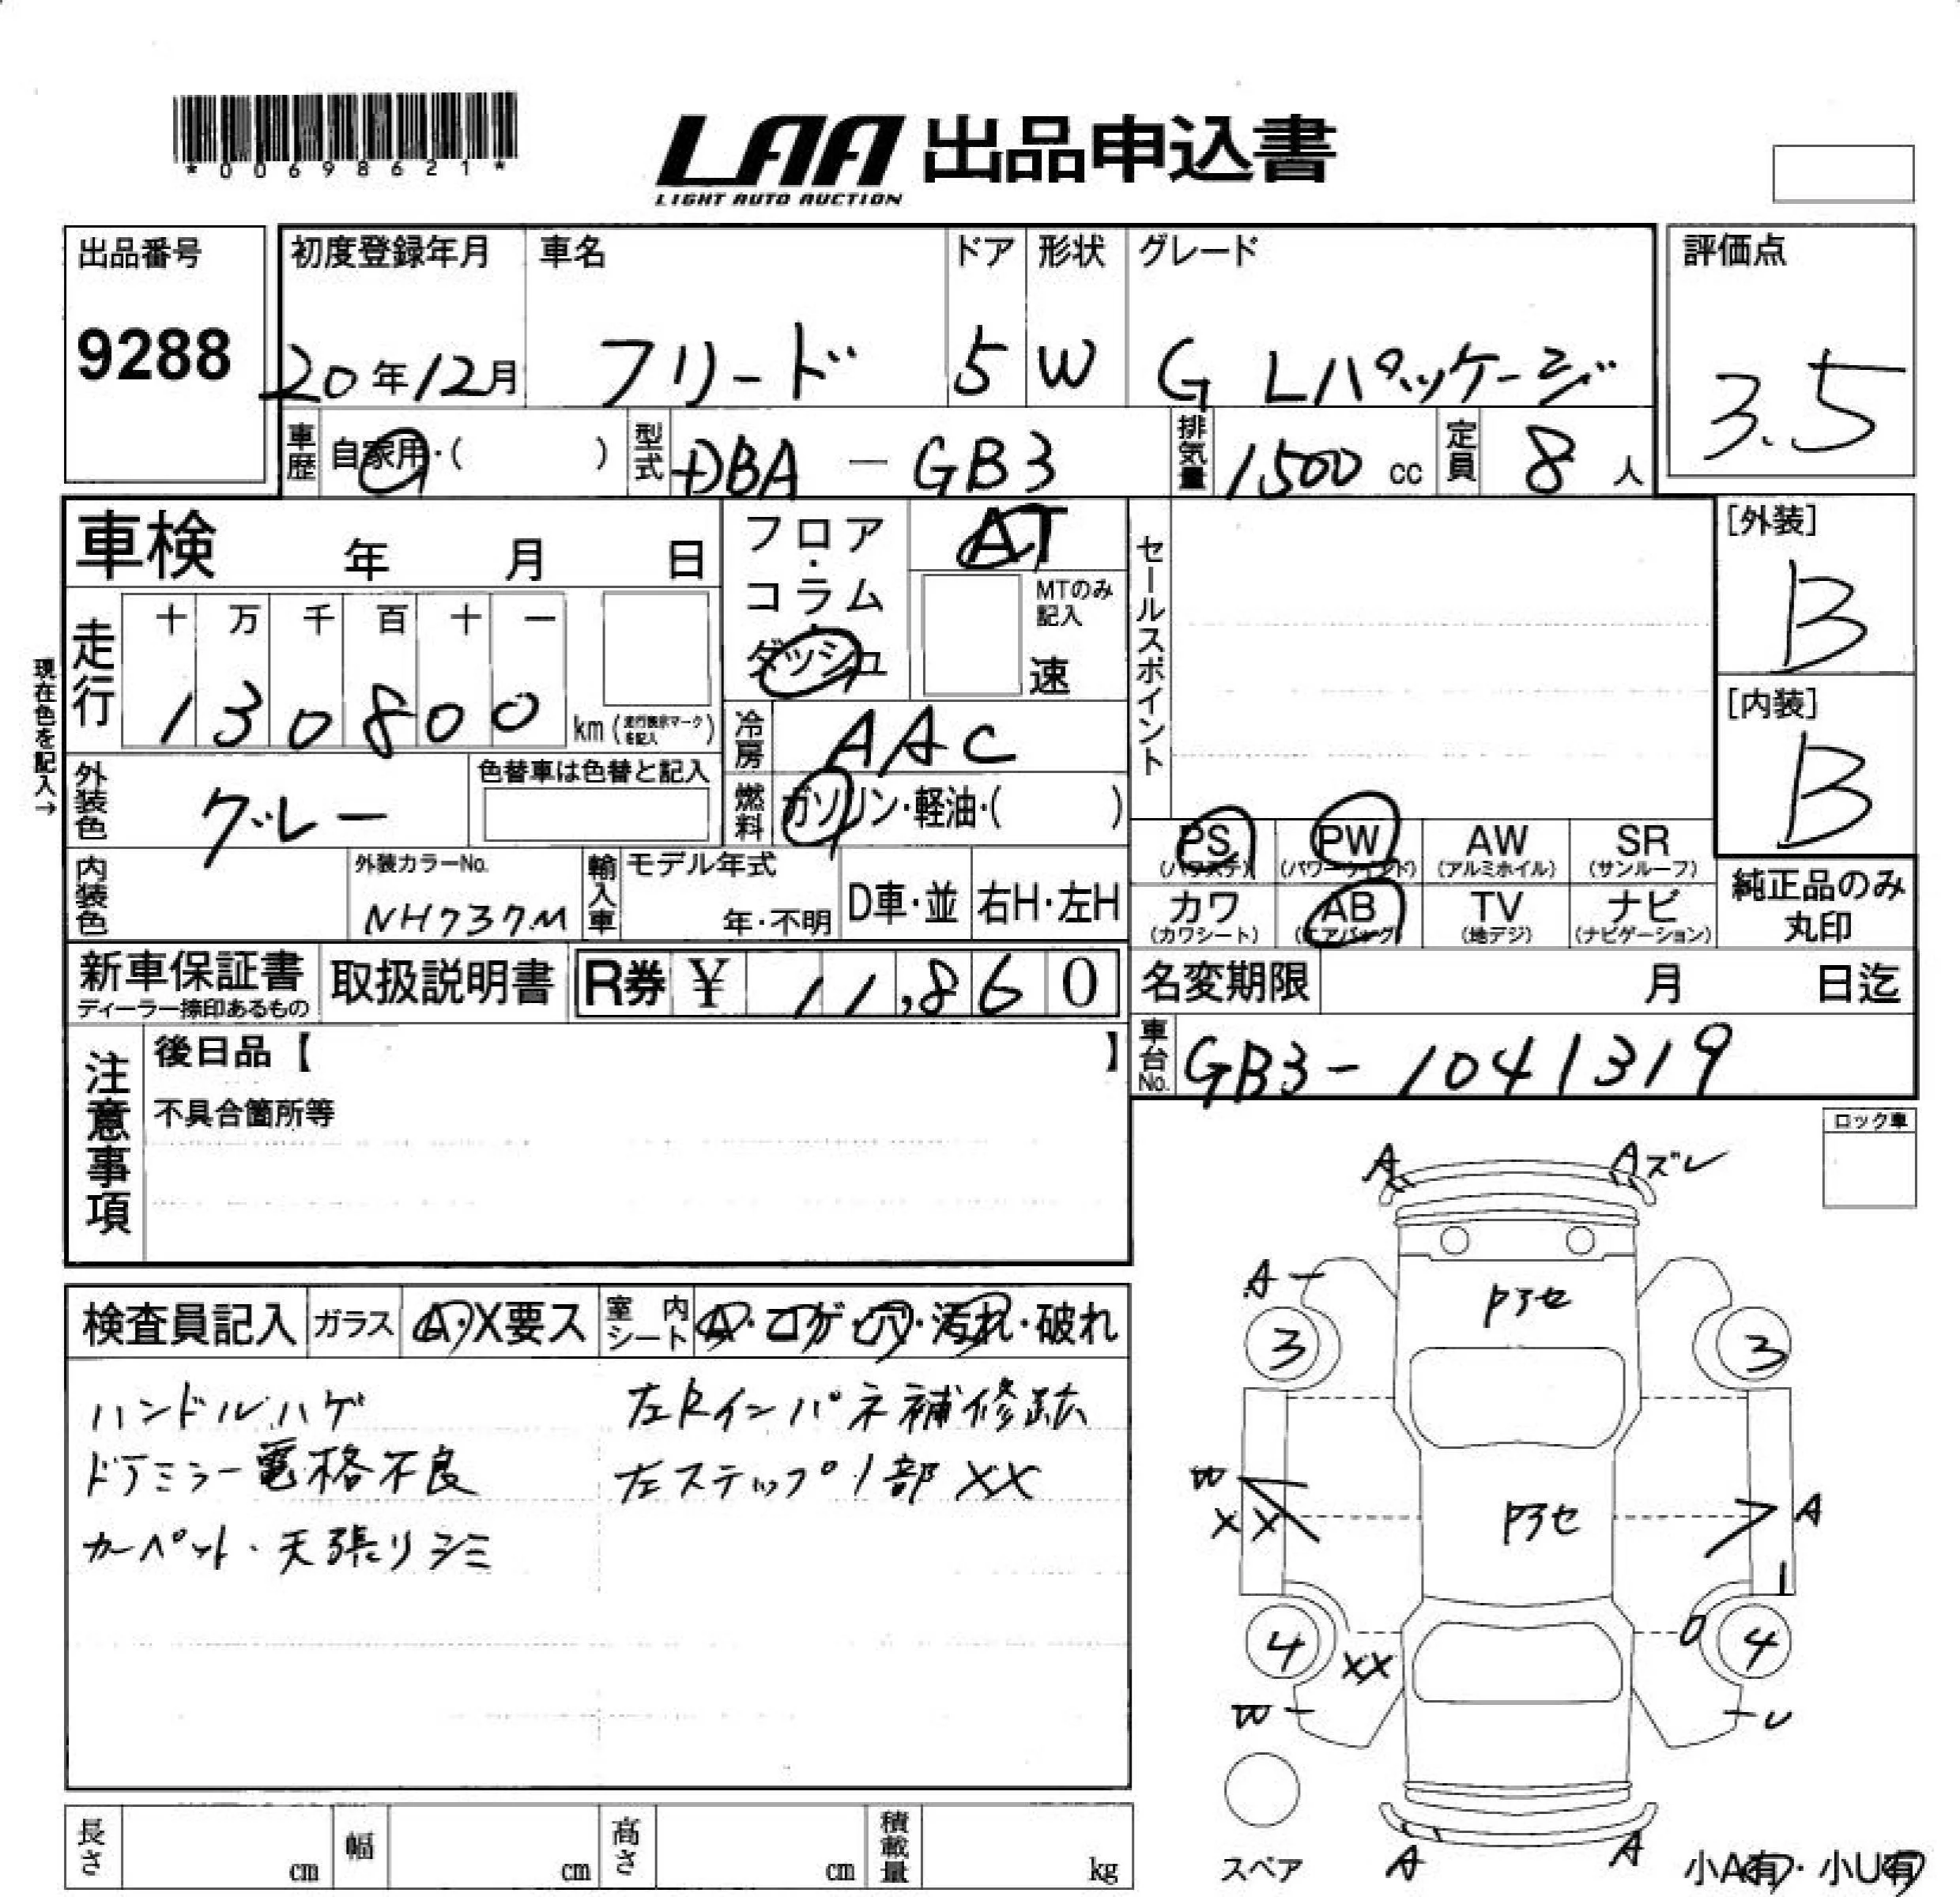 *00698621*
LAA 出品申込書
LIGHT AUTO AUCTION
出品番号 9288
初度登録年月 20年12月
車名 フリード
ドア 5
形状 W
グレード G Lパッケージ
評価点 3.5
車歴 自家用・( )
型式 DBA - GB3
排気量 1500 cc
定員 8 人
車検 年 月 日
フロア・コラム・ダッシュ
AT
MTのみ記入 速
セールスポイント
[外装] B
[内装] B
現在色を記入→
走行 十 万 千 百 十 一
130800 km (走行表示マークを記入)
冷房 AAC
外装色 グレー
色替車は色替と記入
燃料 ガソリン・軽油・( )
内装色
外装カラーNo. NH737M
輸入車 モデル年式 年・不明
D車・並 右H・左H
PS (パワステ) PW (パワーウインド) AW (アルミホイル) SR (サンルーフ)
カワ (カワシート) AB (エアバッグ) TV (地デジ) ナビ (ナビゲーション)
純正品のみ丸印
新車保証書 ディーラー捺印あるもの
取扱説明書
R券 ¥ 11,860
名変期限 月 日迄
車台No. GB3-1041319
注意事項
後日品【 】
不具合箇所等
ロック車
検査員記入 ガラス A・X要ス 室内シート A・コゲ・穴・汚れ・破れ
ハンドルハゲ 左Rインパネ補修跡
ドアミラー電格不良 左ステップ1部XX
カーペット・天張りシミ
A Aズレ
A
3 3
W
XX A
4 XX 4
W U
スペア A A
小A有・小U有
長さ cm 幅 cm 高さ cm 積載量 kg